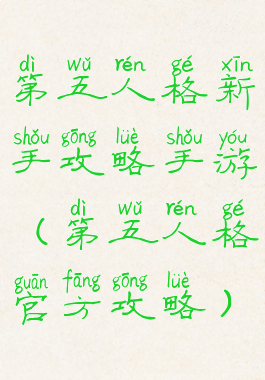 dì wǔ rén gé xīn
第五人格新
shǒu gōng lüè shǒu yóu
手攻略手游
dì wǔ rén gé
（第五人格
guān fāng gōng lüè
官方攻略）